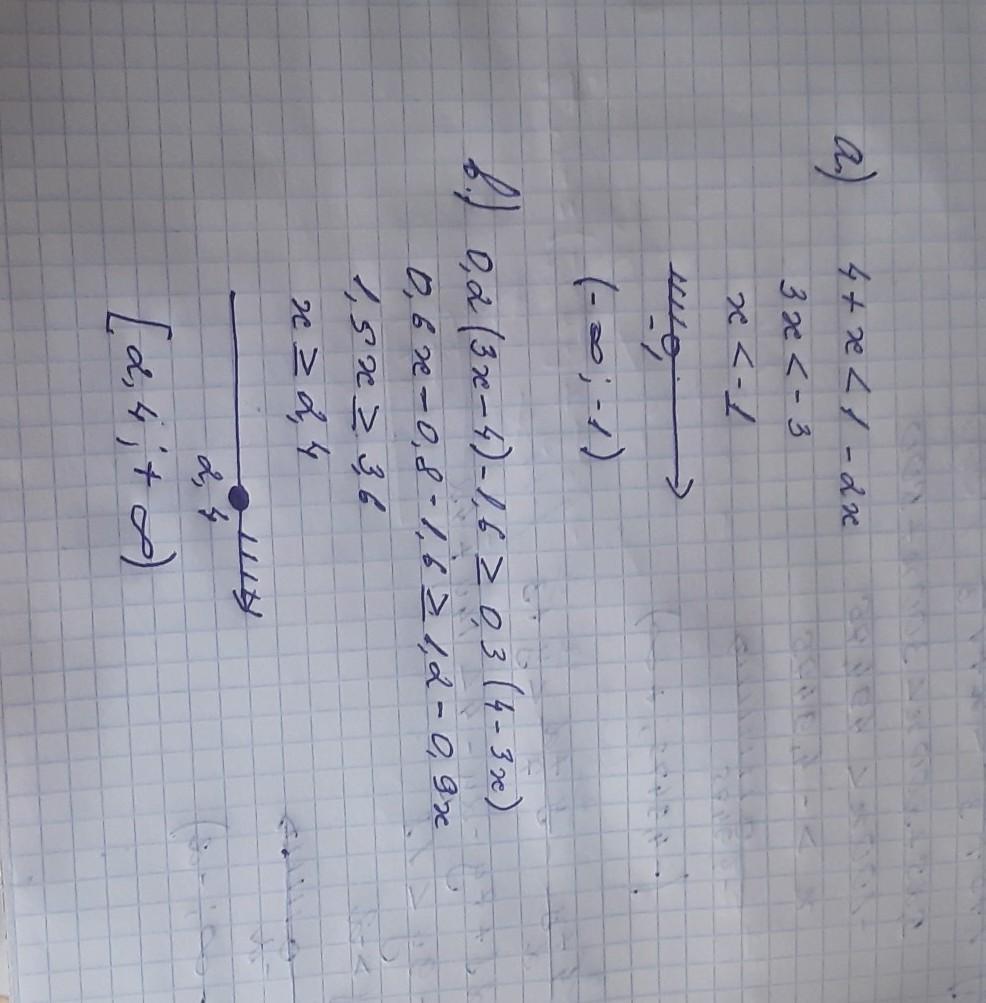 а) 4 + x < 1 - 2x
3x < -3
x < -1
-1
(-∞; -1)
в) 0,2 (3x - 4) - 1,6 ≥ 0,3 (4 - 3x)
0,6x - 0,8 - 1,6 ≥ 1,2 - 0,9x
1,5x ≥ 3,6
x ≥ 2,4
2,4
[2,4; +∞)